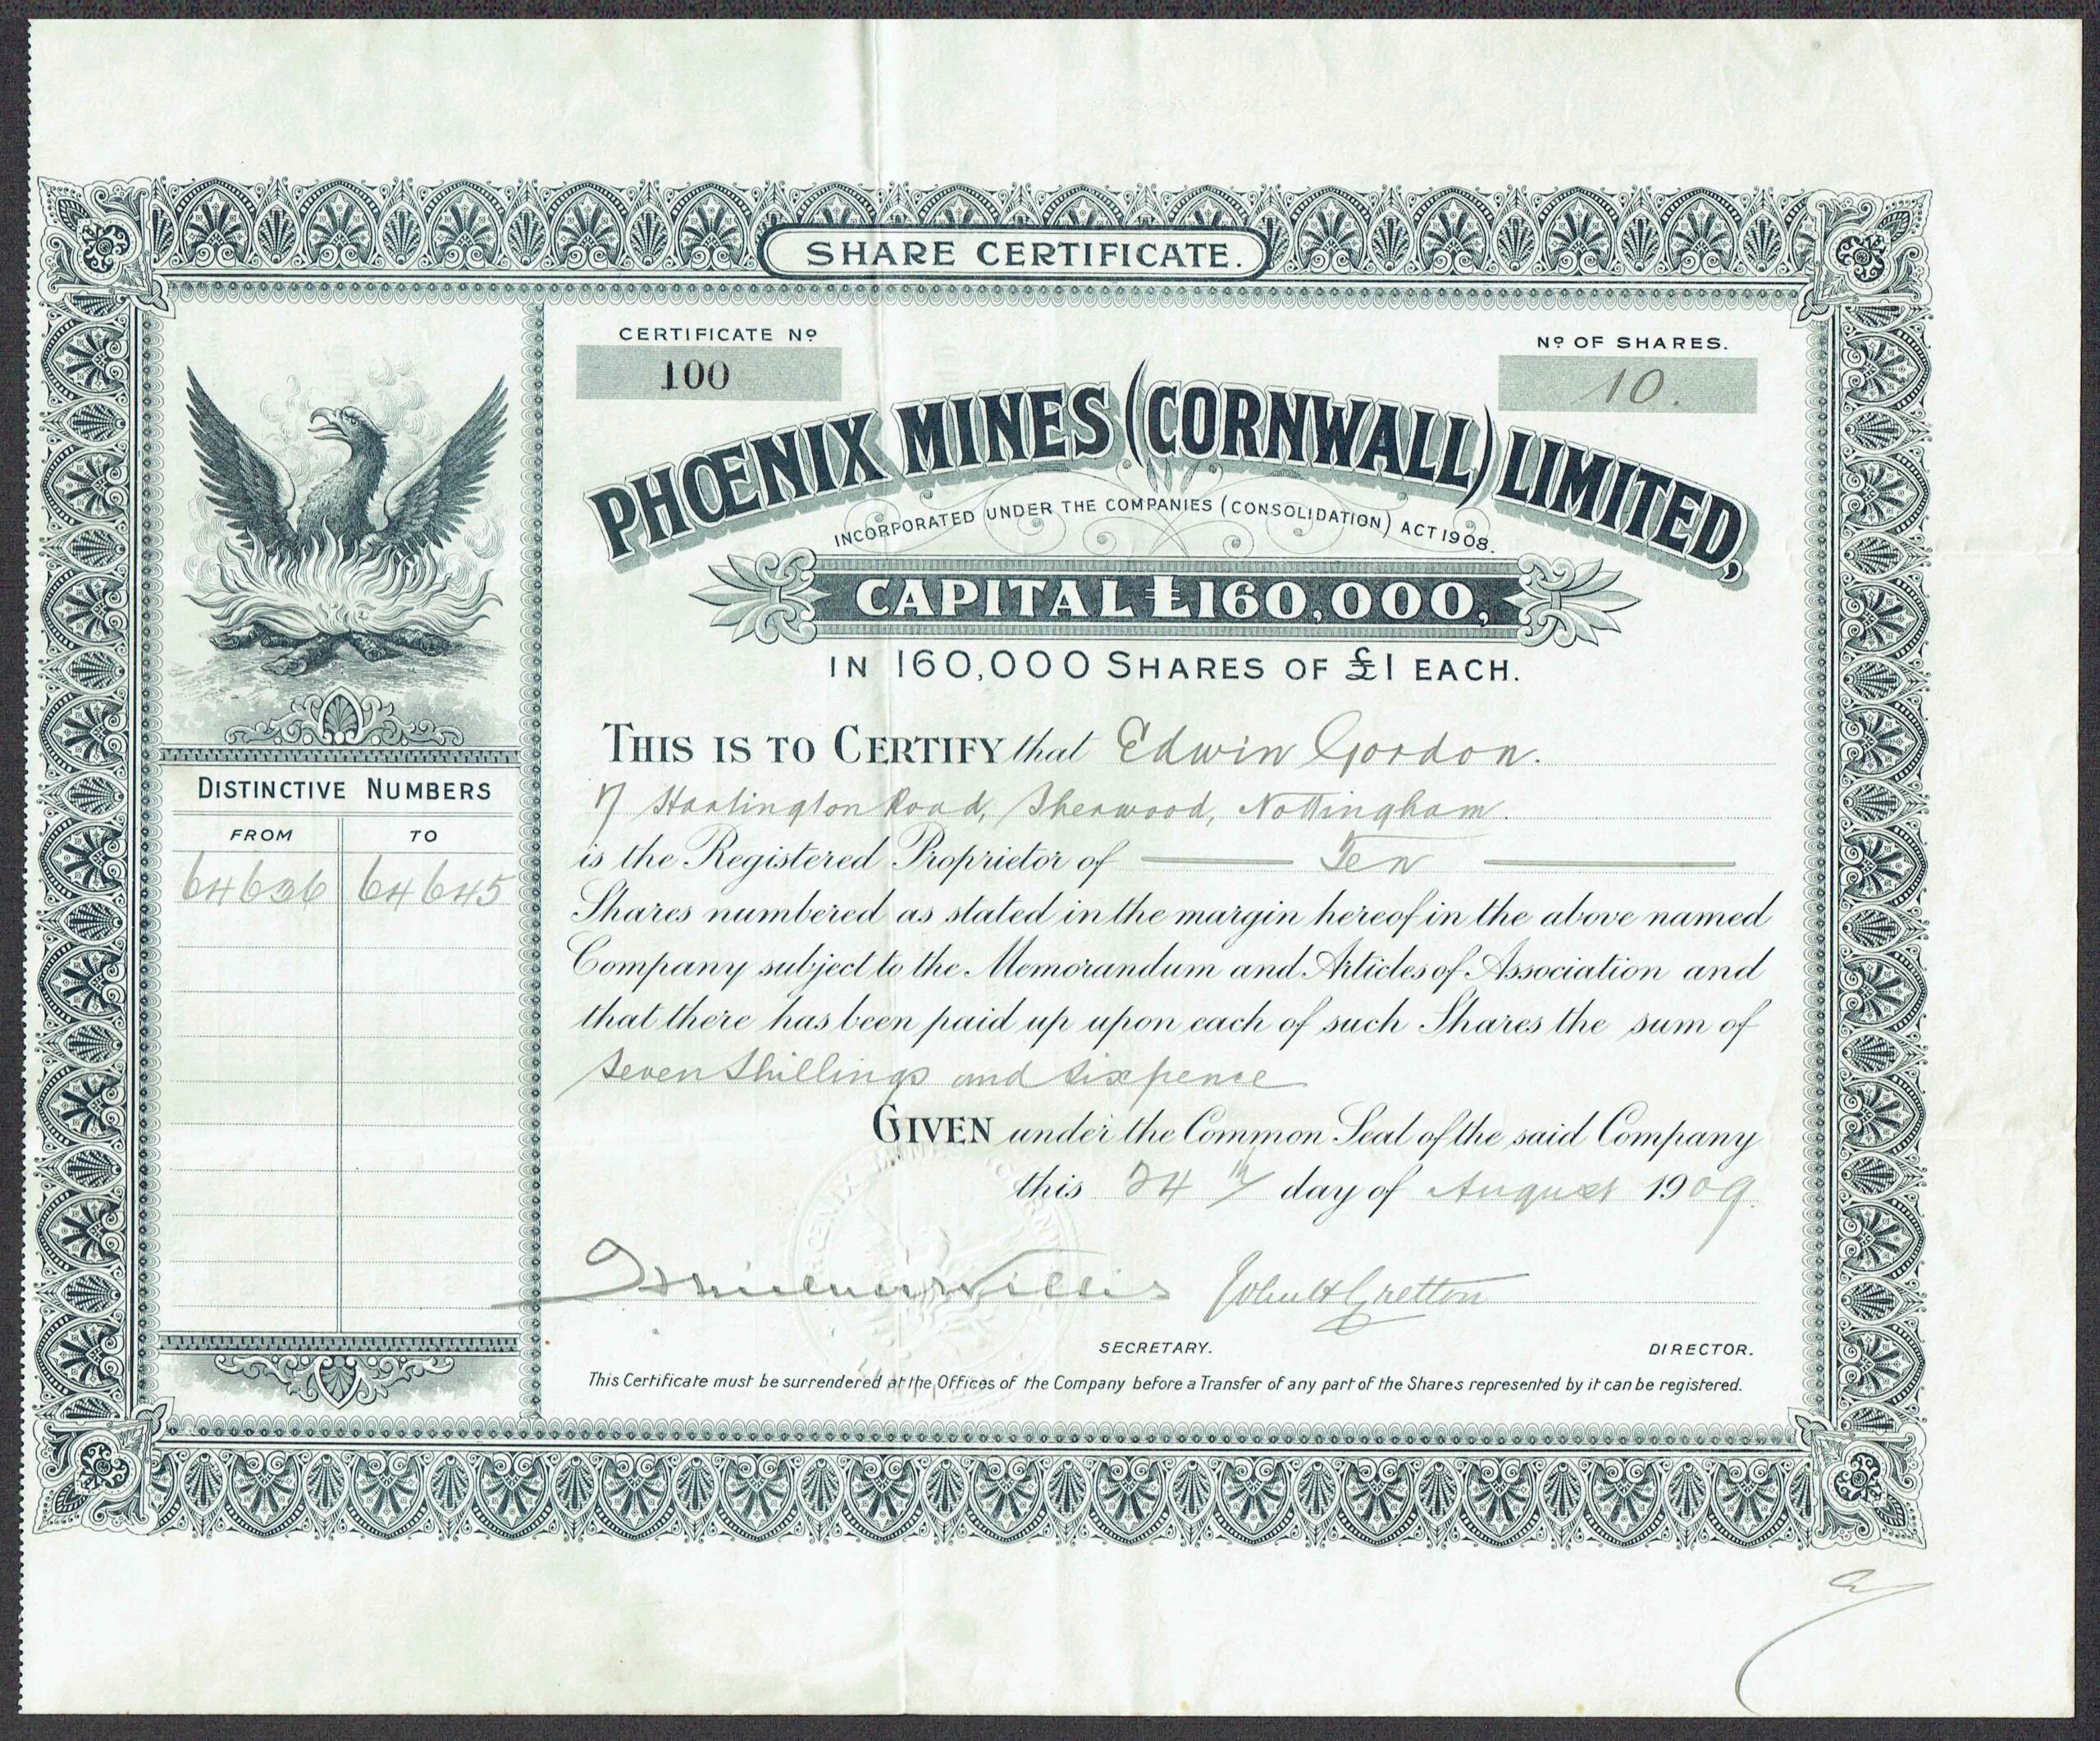 SHARE CERTIFICATE.
CERTIFICATE Nº
100
Nº OF SHARES.
10.
PHŒNIX MINES (CORNWALL) LIMITED,
INCORPORATED UNDER THE COMPANIES (CONSOLIDATION) ACT 1908.
CAPITAL £160,000,
IN 160,000 SHARES OF £1 EACH.
THIS IS TO CERTIFY that Edwin Gordon.
7 Hartington Road, Sherwood, Nottingham.
is the Registered Proprietor of Ten
Shares numbered as stated in the margin hereof in the above named
Company subject to the Memorandum and Articles of Association and
that there has been paid up upon each of such Shares the sum of
Seven Shillings and Sixpence
GIVEN under the Common Seal of the said Company
this 24th day of August 1909.
Willis John H Gretton
SECRETARY. DIRECTOR.
This Certificate must be surrendered at the Offices of the Company before a Transfer of any part of the Shares represented by it can be registered.
DISTINCTIVE NUMBERS
FROM TO
64636 64645